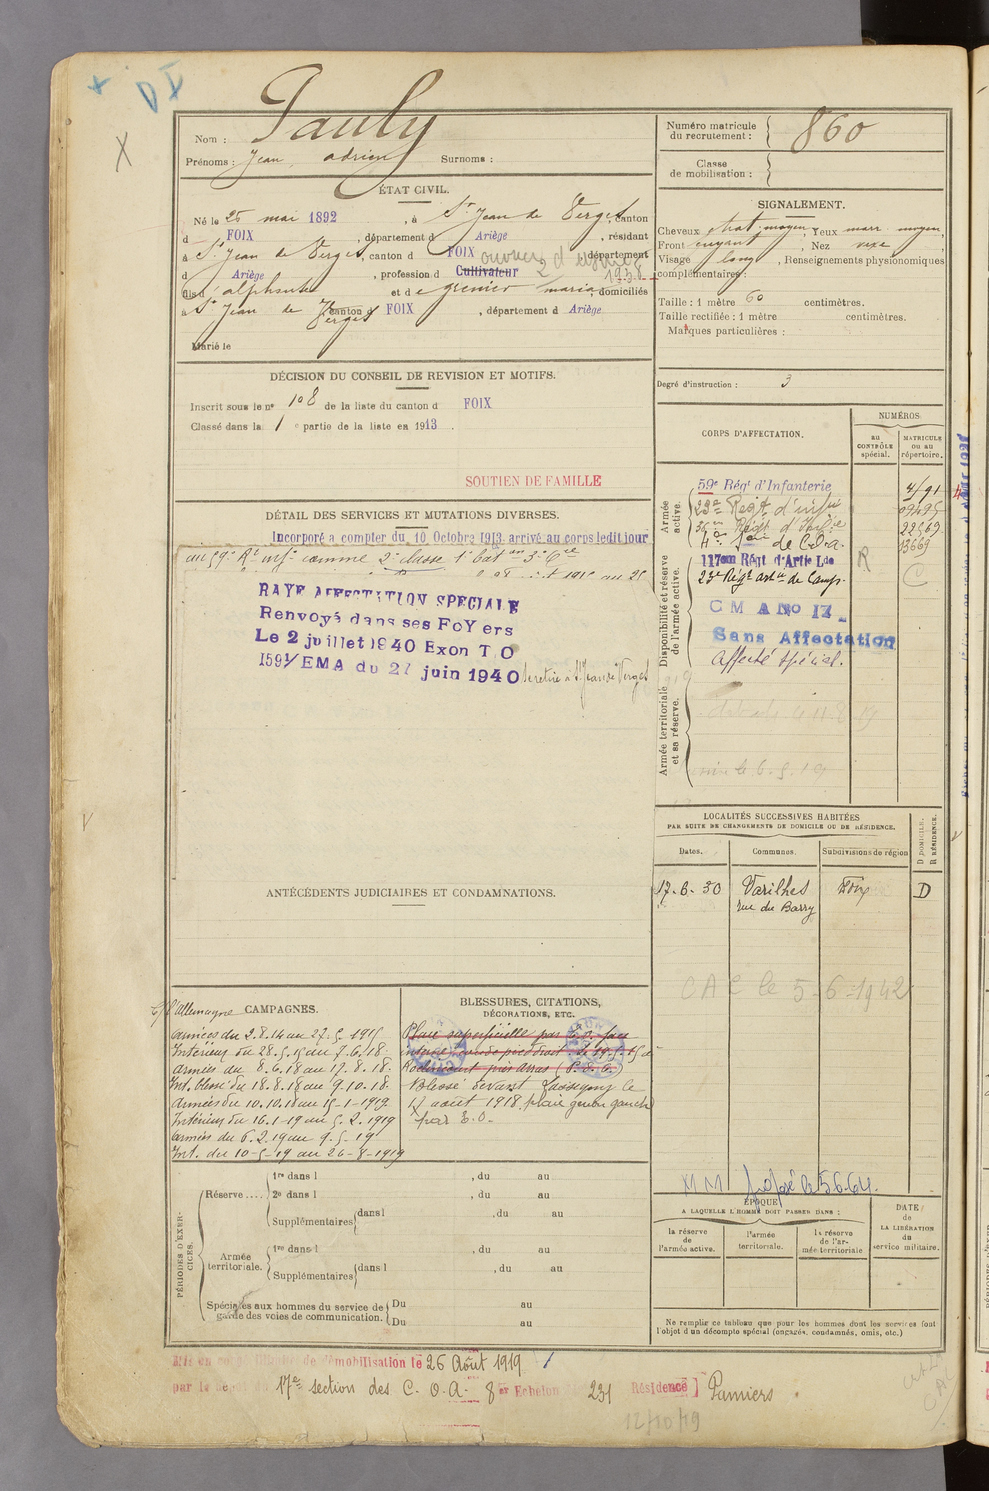 D X
X
Nom : Pauly
Prénoms : Jean, adrien Surnoms :
Numéro matricule du recrutement : 860
Classe de mobilisation :
ÉTAT CIVIL.
Né le 25 mai 1892, à St Jean de Verges, canton
d FOIX, département d Ariège, résidant
à St Jean de Verges, canton d FOIX, département
d Ariège, profession d Cultivateur ouvrier d'usines 1938
fils d'alphonse et de grenier maria, domiciliés
à St Jean de Verges canton d FOIX, département d Ariège.
Marié le
SIGNALEMENT.
Cheveux chat. moyen, Yeux marr moyen,
Front fuyant, Nez vexe
Visage long, Renseignements physionomiques
complémentaires :
Taille : 1 mètre 60 centimètres.
Taille rectifiée : 1 mètre centimètres.
Marques particulières :
Degré d'instruction : 3
DÉCISION DU CONSEIL DE REVISION ET MOTIFS.
Inscrit sous le n° 108 de la liste du canton d FOIX
Classé dans la 1 e partie de la liste en 1913.
SOUTIEN DE FAMILLE
DÉTAIL DES SERVICES ET MUTATIONS DIVERSES.
Incorporé a compter du 10 Octobre 1913. arrivé au corps ledit jour
au 59e Rt inf comme 2e classe 1e Bat on 3e Cie
RAYE AFFECTATION SPECIALE
Renvoyé dans ses FoYers
Le 2 juillet 1940 Exon T O
1591/EMA du 27 juin 1940
Se retire à St Jean de Verges
CORPS D'AFFECTATION.
NUMÉROS
au CONTRÔLE spécial.
MATRICULE ou au répertoire.
Armée active.
59e Régt d'Infanterie
23e Régt d'infie
Disponibilité et réserve de l'armée active.
117em Régt d'Artie Lde
13669
23e Régt artie de Camp.
R
C M A No 17
Sans Affectation
Affecté spécial.
Armée territoriale et sa réserve.
LOCALITÉS SUCCESSIVES HABITÉES
PAR SUITE DE CHANGEMENTS DE DOMICILE OU DE RÉSIDENCE.
Dates. Communes. Subdivisions de région D DOMICILE. R RÉSIDENCE.
17-6-30 Varilhes Foix D
rue du Barry
CAC le 5-6-1942
ANTÉCÉDENTS JUDICIAIRES ET CONDAMNATIONS.
C/ l'Allemagne CAMPAGNES.
Armées du 2.8.14 au 27.5.1915
Intérieur du 28.5.15 au 7.6.18.
Armées du 8.6.18 au 17.8.18.
Int. blessé du 18.8.18 au 9.10.18.
Armées du 10.10.18 au 15-1-1919.
Intérieur du 16.1-19 au 5.2.1919
Armées du 6.2.19 au 9.5.19
Int. du 10-5-19 au 26-8-1919
BLESSURES, CITATIONS,
DÉCORATIONS, ETC.
Plaie superficielle par
Blessé devant Lassigny le
17 août 1918 plaie genou gauche
par E.O.
MM proposé le 5664.
PÉRIODES D'EXERCICES.
Réserve .... 1re dans l , du au
2e dans l , du au
Supplémentaires dans l , du au
Armée territoriale. 1re dans l , du au
Supplémentaires dans l , du au
Spéciales aux hommes du service de garde des voies de communication. Du au
Du au
ÉPOQUE
A LAQUELLE L'HOMME DOIT PASSER DANS :
la réserve de l'armée active.
l'armée territoriale.
la réserve de l'armée territoriale
DATE de LA LIBÉRATION du service militaire.
Ne remplir ce tableau que pour les hommes dont les services font l'objet d'un décompte spécial (engagés, condamnés, omis, etc.)
Mis en congé illimité de démobilisation le 26 Août 1919
par le dépôt du 17e section des C. O. A. 8er Echelon 231 Résidence] Pamiers
12/10/19